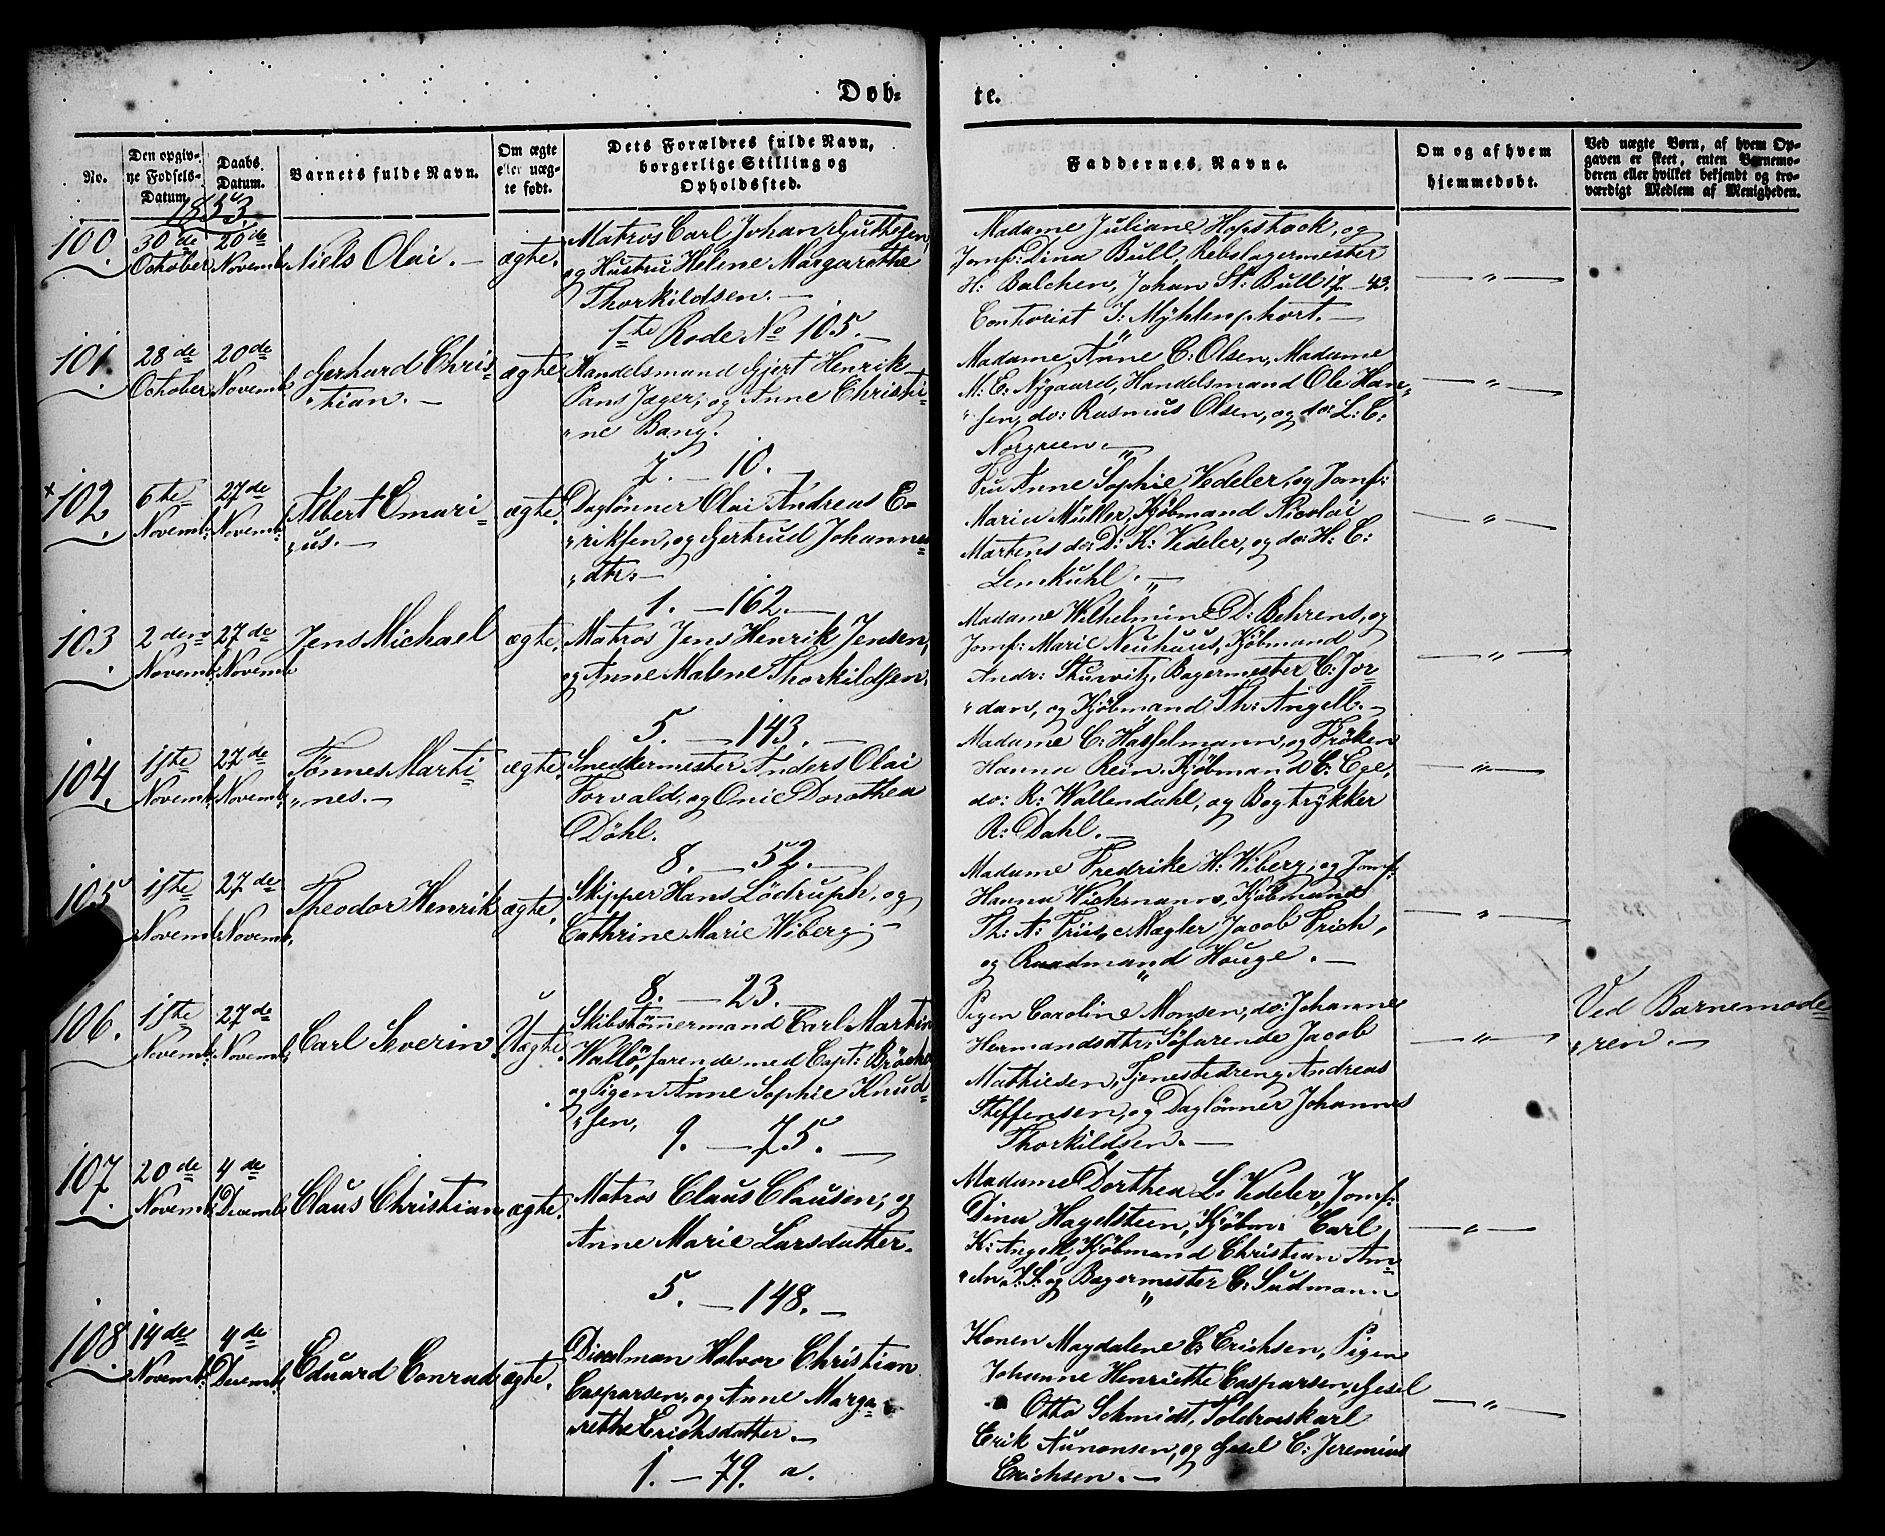 Døb-
te.
No.
Den opgiv-
ne Fødsels-
Datum.
Daabs
Datum.
Barnets fulde Navn.
Om ægte
eller uæg-
te født.
Dets Forældres fulde Navn,
borgerlige Stilling og
Opholdssted.
Faddernes Navne.
Om og af hvem
hjemmedøbt.
Ved uægte Børn, af hvem Op-
gaven er skeet, enten Barnemo-
deren eller hvilket bekjendt og tro-
værdigt Medlem af Menigheden.
1853.
100.
30 de
October
20 de
Novemb:
Niels Olai. —
ægte.
Matros Carl Johan
og Hustru Helene Margarethe
Thorkildsen. —
1ste Rode No 105. —
Madame Juliane Hopstock, og
Jomf: Dina Bull, Rebslagermester
H: Balchen, Johan St: Bull
Contorist J:
— " —
101.
28 de
October
20 de
Novemb:
Gerhard Chris-
"tian. —
ægte.
Handelsmand Gjert Henrik
Pans Jæger, og Anne Christi-
"ne Bang.
7. — 10. —
Madame Anne C: Olsen, Madame
M: E: Nygaard, Handelsmand Ole Han-
"sen, do: Rasmus Olsen, og do: L: C:
Norgreen. —
— " —
102.
6te
Novemb:
27 de
Novemb:
Albert Omari-
"us. —
ægte.
Daglønner Olai Andreas E-
"riksen, og Gertrud Johannes-
"dtr. —
1. — 162. —
Fru Anne Sophie Vedeler, og Jomf:
Maria Müller, Kjøbmand Nicolai
Martens do: D: K: Vedeler, og do: H: C:
Lemkühl. —
— " —
103.
2 den
Novemb:
27 de
Novemb:
Jens Michael
ægte.
Matros Jens Henrik Jensen,
og Anne Malene Thorkildsen.
5. — 143. —
Madame Wilhelmine D: Behrens, og
Jomf: Marie Neuhaus, Kjøbmand
Andr: Sturvitz, Bagermester C: Jor-
"dan, og Kjøbmand Th: Angell. —
— " —
104.
1ste
Novemb:
27 de
Novemb:
Tønnes Marti-
"nes. —
ægte.
Snedkermester Anders Olai
Forvald, og Onie Dorothea
Döhl.
8. — 52. —
Madame C: Hasselmann, og Frøken
Hanna Rein, Kjøbmand C: Ege,
do: R: Wallendahl, og Bogtrykker
R: Dahl. —
— " —
105
1ste
Novemb:
27 de
Novemb:
Theodor Henrik
ægte.
Skipper Hans Lödruph, og
Cathrine Marie Wiberg. —
8. — 23. —
Madame Fredrike H: Wiberg, og Jomf:
Hanna Wichmann, Kjøbmand
Th: A: Friis, Mægler Jacob Frich,
og Raadmand Houge. —
— " —
106.
1ste
Novemb:
27 de
Novemb:
Carl Severin
Uægte.
Skibstømmermand Carl Martin
Wallö, farende med Capt:
og Pigen Anne Sophie Knud-
"sen,
9. — 75. —
Pigen Caroline Monsen, do: Johanne
Hermandsdtr, Søfarende Jacob
Mathiesen, Tjenestedreng Andreas
Steffensen, og Daglønner Johannes
Thorkildsen. —
— " —
Ved Barnemode-
"ren. —
107.
20 de
Novemb:
4 de
Decemb:
Claus Christian
ægte.
Matros Claus Clausen, og
Anne Marie Larsdatter.
5. — 148. —
Madame Dorthea L: Vedeler, Jomf:
Dina Hagelsteen, Kjøbm: Carl
K: Angell, Kjøbmand Christian Am-
"eln, og Bagermester C: Sudmann
— " —
108.
14 de
Novemb:
4 de
Decemb:
Eduard Conrad
ægte.
Halvor Christian
Casparsen, og Anne Marga-
"rethe Erichsdatter. —
1. — 79. a.
Konen Magdalene E: Erichsen, Pigen
Johanne Henriette Casparsen, Gesel
Otto Schmidt, Toldroerskarl
Erik Aunonsen, og Gesel C: Jeremias
Erichsen. —
— " —